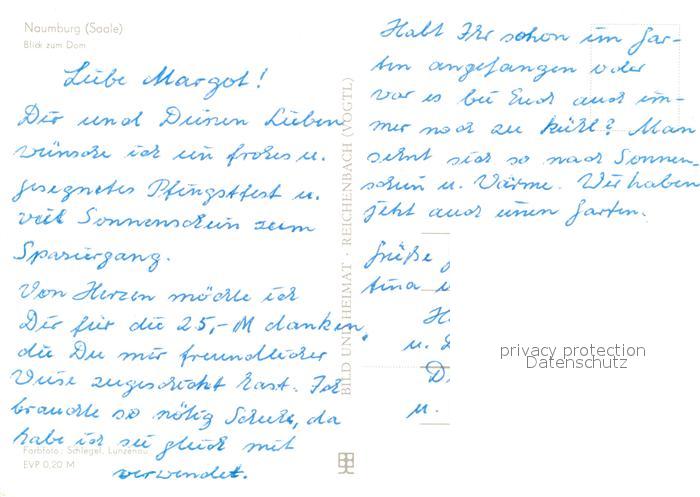 Naumburg (Saale)
Blick zum Dom
Liebe Margot!
Dir und Deinen Lieben
wünsche ich ein frohes u.
gesegnetes Pfingstfest u.
viel Sonnenschein zum
Spaziergang.
Von Herzen möchte ich
Dir für die 25,- M danken,
die Du mir freundlicher
Weise zugeschickt hast. Ich
brauchte so nötig Schuhe, da
habe ich sie gleich mit
verwendet.
Farbfoto: Schlegel, Lunzenau
EVP 0,20 M
BILD UND HEIMAT · REICHENBACH (VOGTL)
Habt Ihr schon im Gar-
ten angefangen oder
war es bei Euch auch im-
mer noch zu kühl? Man
sehnt sich so nach Sonnen-
schein u. Wärme. Wir haben
jetzt auch einen Garten.
Grüße
tina
u.
u.
privacy protection
Datenschutz